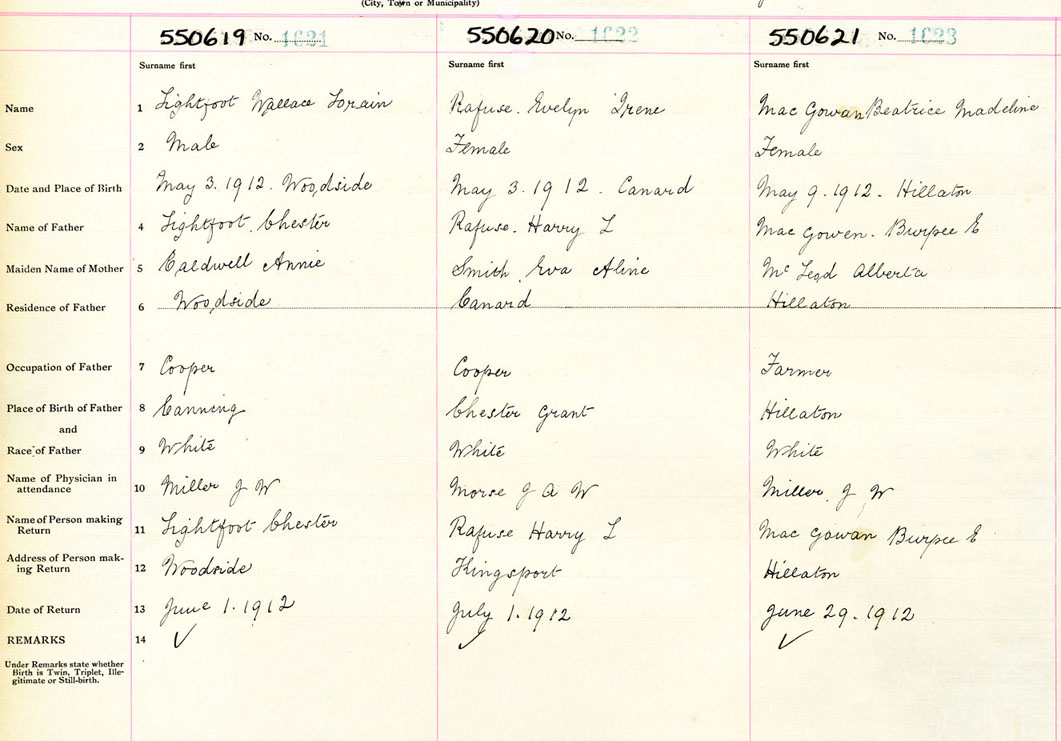 (City, Town or Municipality)
550619 No. 1621 550620 No. 1622 550621 No. 1623
Surname first Surname first Surname first
Name 1 Lightfoot Wallace Lorain Rafuse. Evelyn Irene Mac Gowan Beatrice Madeline
Sex 2 Male Female Female
Date and Place of Birth May 3. 1912. Woodside May 3. 1912. Canard May 9. 1912. Hillaton
Name of Father 4 Lightfoot. Chester Rafuse. Harry L Mac Gowen. Burpee E
Maiden Name of Mother 5 Caldwell Annie Smith Eva Aline Mc Leod Alberta
Residence of Father 6 Woodside Canard Hillaton
Occupation of Father 7 Cooper Cooper Farmer
Place of Birth of Father 8 Canning Chester Grant Hillaton
and
Race of Father 9 White White White
Name of Physician in
attendance 10 Miller J W Morse J A W Miller. J W
Name of Person making
Return 11 Lightfoot Chester Rafuse Harry L Mac Gowan Burpee E
Address of Person mak-
ing Return 12 Woodside Kingsport Hillaton
Date of Return 13 June 1. 1912 July 1. 1912 June 29. 1912
REMARKS 14 ✓ ✓ ✓
Under Remarks state whether
Birth is Twin, Triplet, Ille-
gitimate or Still-birth.